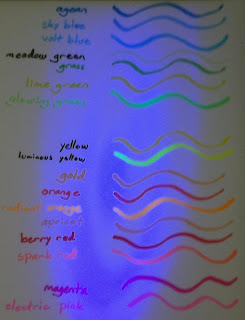 ageen
sky blue
volt blue
meadow green
grass
lime green
glowing green
yellow
luminous yellow
gold
orange
radiant orange
apricot
berry red
spark red
magenta
electric pink